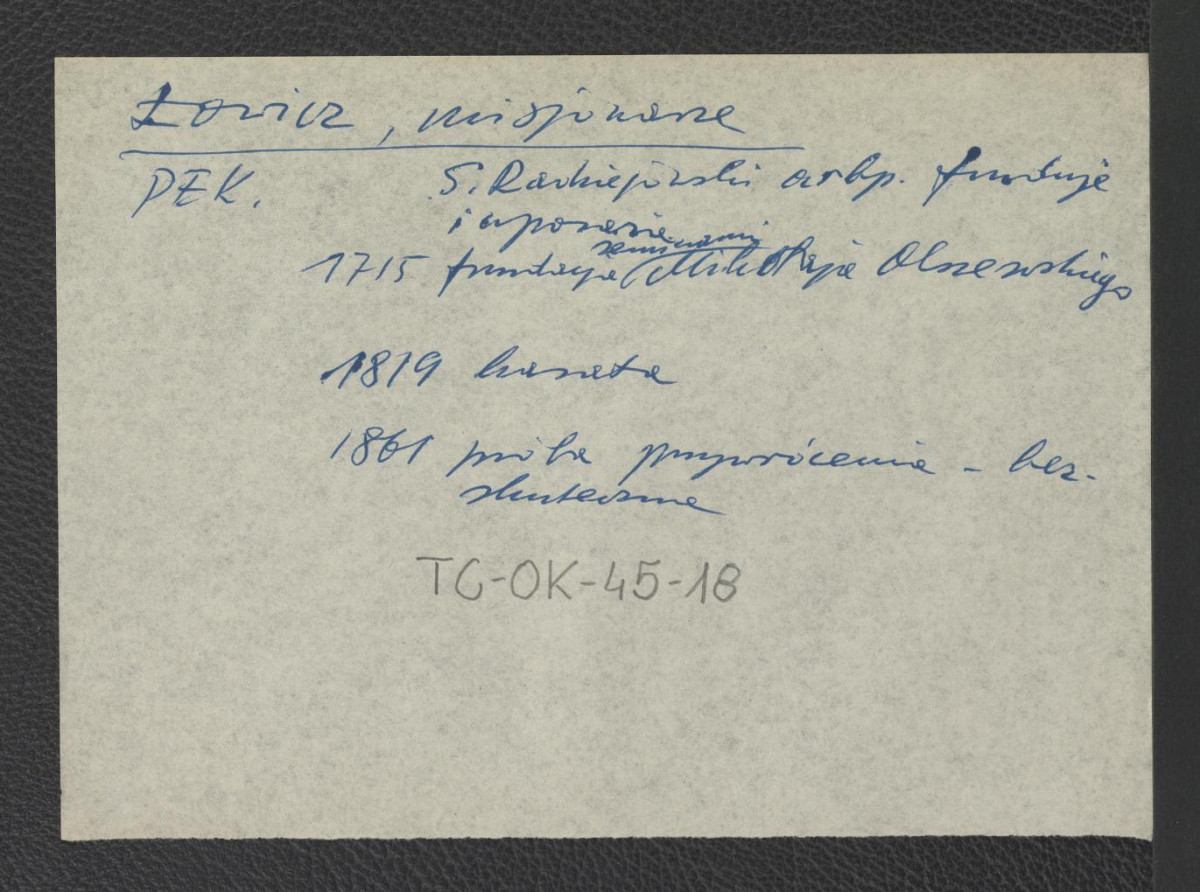 Łowicz, misjonarze
PEK. S. Radziejowski arbp. funduje
i uposaża
seminarium
1715 fundacja Mikołaja Olszewskiego
1819 kasata
1861 próba przywrócenia - bez-
skuteczne
TC-OK-45-18